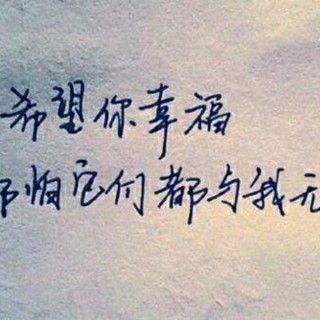 希望你幸福
怕它们都与我无